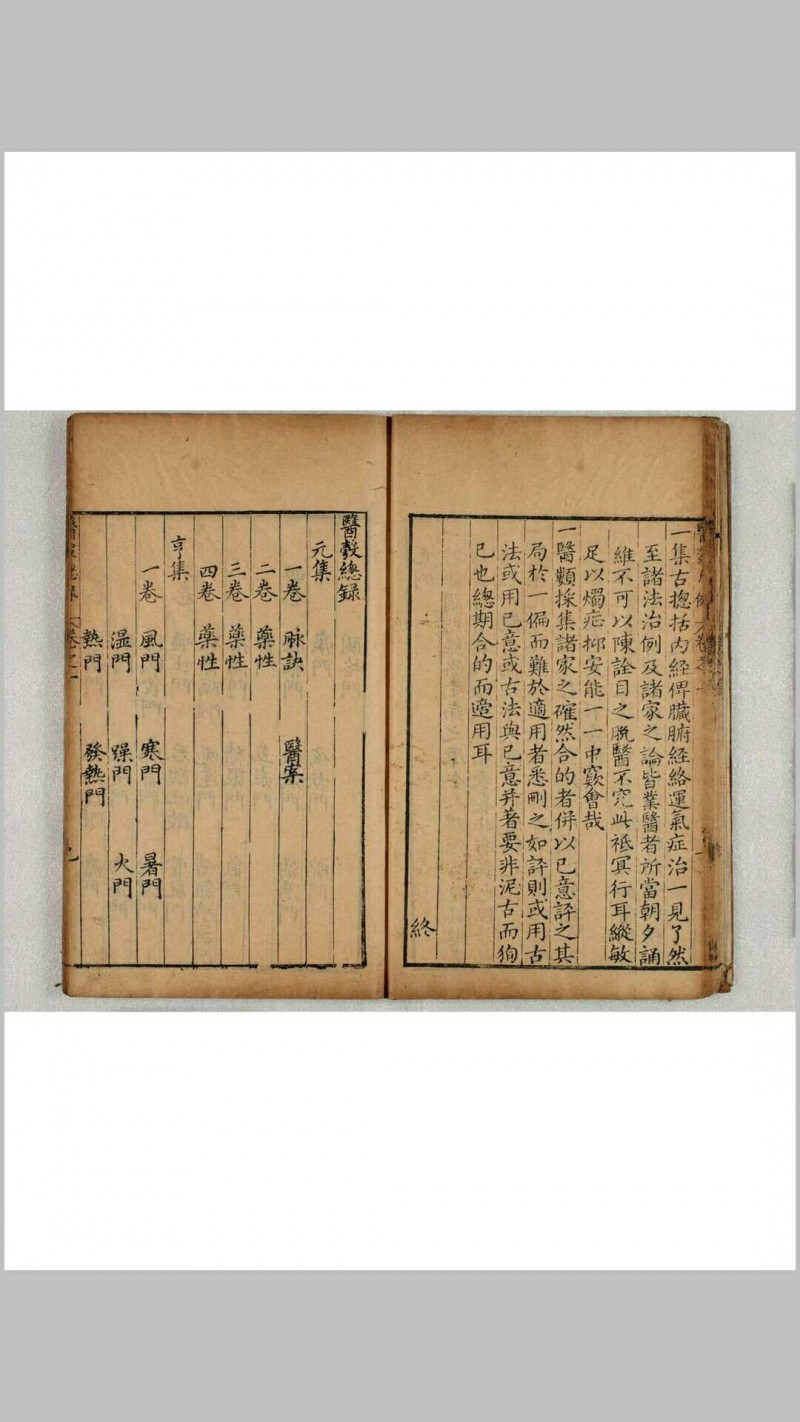 一集古揔括內経俾臟腑経絡運氣症治一見了然
至諸法治例及諸家之論皆業醫者所當朝夕誦
維不可以陳詮目之脫醫不究此祗冥行耳縱敏
足以燭症抑安能一一中窾會哉
一醫顡採集諸家之確然合的者併以已意評之其
局於一偏而難於適用者悉刪之如評則或用古
法或用已意或古法與已意并著要非泥古而狥
已也總期合的而適用耳
終
醫彀總録
元集
一卷 脉訣 醫案
二卷 藥性
三卷 藥性
四卷 藥性
亨集
一卷 風門 寒門 暑門
溫門 燥門 火門
熱門 發熱門